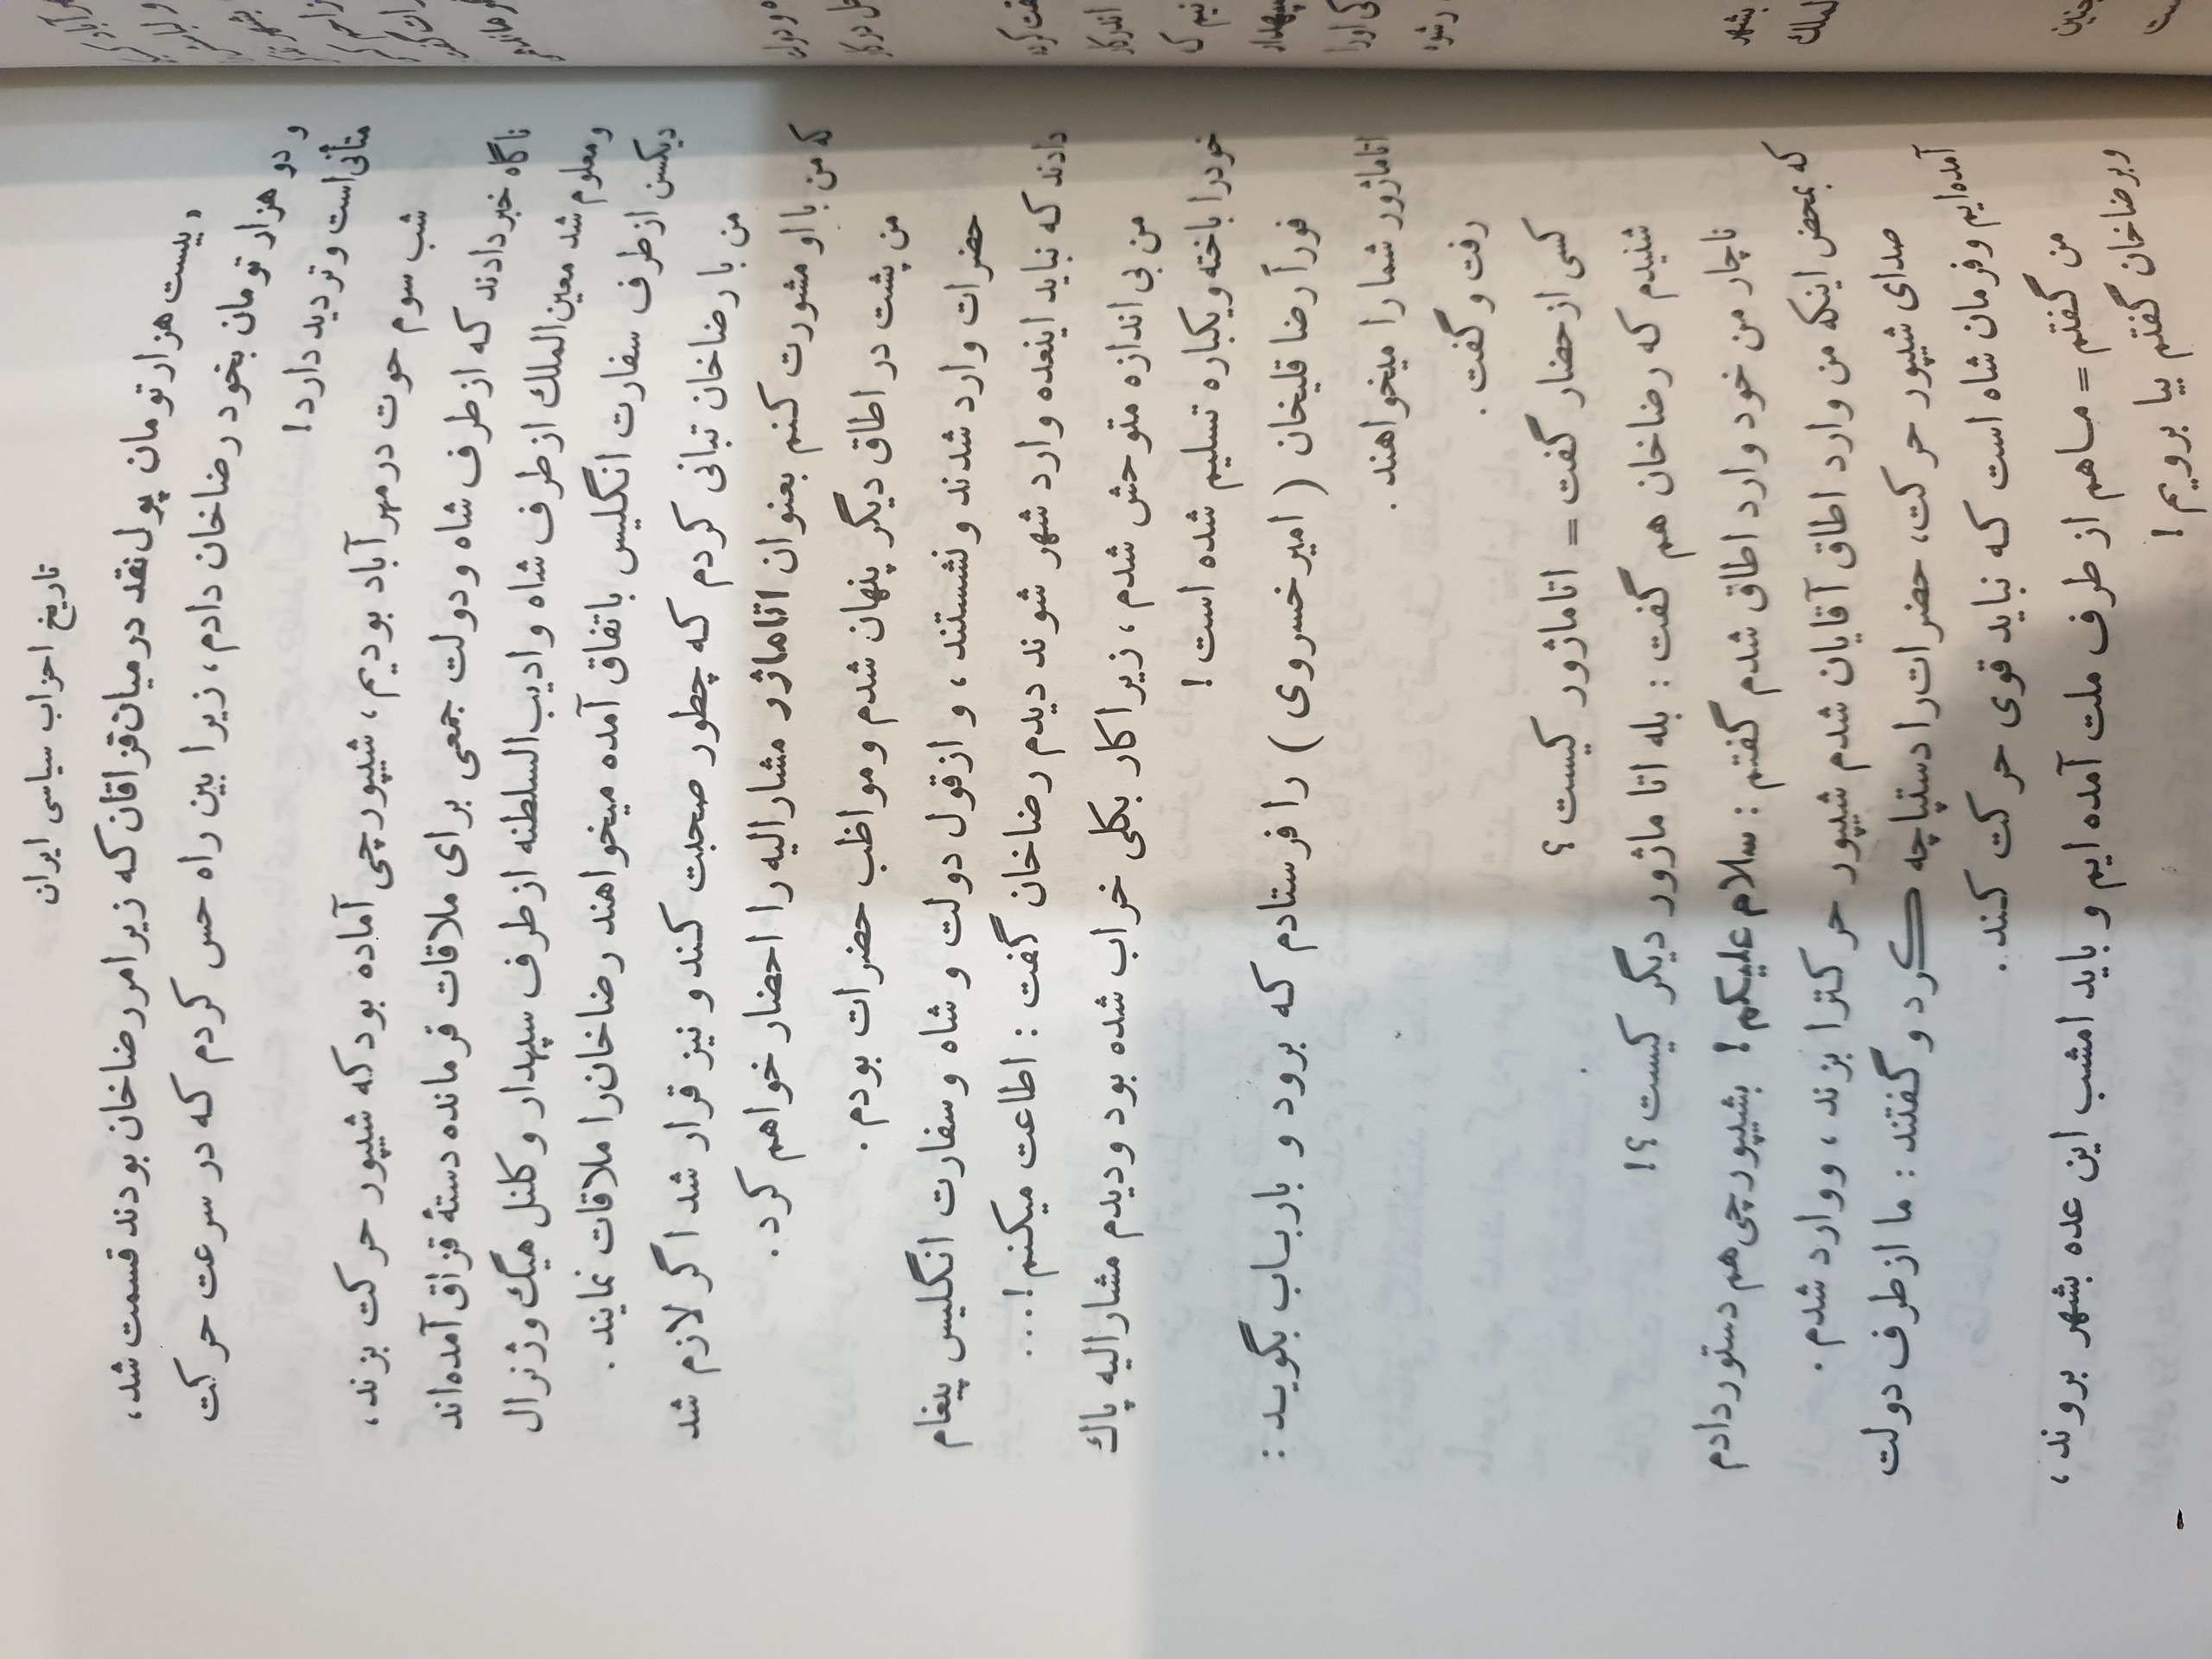 تاریخ احزاب سیاسی ایران
«بیست هزار تومان پول نقد در میان قزاقان که زیر امر رضاخان بودند قسمت شد،
و دو هزار تومان بخود رضاخان دادم، زیرا بین راه حس کردم که در سرعت حرکت
متأنی است و تردید دارد!
شب سوم حوت در مهرآباد بودیم، شیپورچی آماده بود که شیپور حرکت بزند،
ناگاه خبر دادند که از طرف شاه و دولت جمعی برای ملاقات فرمانده دستهٔ قزاق آمده‌اند
و معلوم شد معین‌الملك از طرف شاه و ادیب‌السلطنه از طرف سپهدار و کلنل هیگ و ژنرال
دیکسن از طرف سفارت انگلیس باتفاق آمده میخواهند رضاخان را ملاقات نمایند.
من با رضاخان تبانی کردم که چطور صحبت کند و نیز قرار شد اگر لازم شد
که من با او مشورت کنم بعنوان اتاماژو مشارالیه را احضار خواهم کرد.
من پشت در اطاق دیگر پنهان شدم و مواظب حضرات بودم.
حضرات وارد شدند و نشستند، و از قول دولت و شاه و سفارت انگلیس پیغام
دادند که نباید اینعده وارد شهر شوند دیدم رضاخان گفت: اطاعت میکنم!...
من بی اندازه متوحش شدم، زیرا کار بکلی خراب شده بود و دیدم مشارالیه پاك
خود را باخته و یکباره تسلیم شده است!
فوراً رضا قلیخان (امیر خسروی) را فرستادم که برود و بارباب بگوید:
اتاماژور شما را میخواهند.
رفت و گفت.
کسی از حضار گفت = اتاماژور کیست؟
شنیدم که رضاخان هم گفت: بله اتا ماژور دیگر کیست؟!
ناچار من خود وارد اطاق شدم گفتم: سلام علیکم! بشیپورچی هم دستور دادم
که بمحض اینکه من وارد اطاق آقایان شدم شیپور حرکترا بزند، و وارد شدم.
صدای شیپور حرکت، حضرات را دستپاچه کرد و گفتند: ما از طرف دولت
آمده‌ایم و فرمان شاه است که نباید قوی حرکت کند.
من گفتم = ما هم از طرف ملت آمده ایم و باید امشب این عده بشهر بروند،
و برضاخان گفتم بیا برویم!